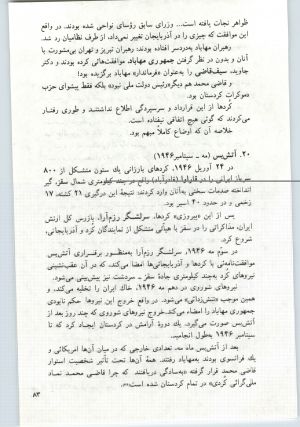 ظواهر نجات یافته است... وزرای سابق رؤسای نواحی شده بودند. در واقع
این موافقت که چیزی را در آذربایجان تغییر نمی‌داد، از طرف نظامیان رد شد.
رهبران مهاباد به‌دردسر افتاده بودند: رهبران تبریز و تهران بی‌مشورت با
آنان و بدون در نظر گرفتن جمهوری مهاباد موافقت‌هائی کرده بودند و دکتر
جاوید، سیف‌قاضی را به‌عنوان «فرماندار» مهاباد برگزیده بود!
و قاضی محمد هم دیگر «رئیس دولت ملی نبود» بلکه فقط پیشوای حزب
دموکرات کردستان بود.
کردها از این قرارداد و سرسپردگی اطلاع نداشتند و طوری رفتار
می‌کردند که گوئی هیچ اتفاقی نیفتاده است.
خلاصه آن که اوضاع کاملاً مبهم بود.
۲۰. آتش‌بس (مه - سپتامبر ۱۹۴۶)
در ۲۴ آوریل ۱۹۴۶، کردهای بارزانی یک ستون متشکل از ۸۰۰
کیلومتری شمال سقز، گیر
انداخته صدمات سختی به‌آنان وارد کردند؛ نتیجهٔ این درگیری ۲۱ کشته، ۱۷
زخمی و در حدود ۴۰ اسیر بود.
پس از این «پیروزی» کردها، سرلشگر رزم‌آرا، بازرس کل ارتش
ایران، مذاکراتی را در سقز با هیأتی متشکل از نمایندگان کرد و آذربایجانی،
شروع کرد.
در سوّم مه ۱۹۴۶، سرلشگر رزم‌آرا به‌منظور برقراری آتش‌بس
موافقت‌نامه‌ئی با کردها و آذربایجانی‌ها امضا می‌کند، که در آن عقب‌نشینی
نیروهای کرد به‌چند کیلومتری جادهٔ سقز - سردشت نیز پیش‌بینی می‌شود.
نیروهای شوروی در دهم مه ۱۹۴۶، خاک ایران را تخلیه می‌کنند، و
همین موجب «تنش‌زدائی» می‌شود. در واقع خروج این نیروها حکم نابودی
جمهوری مهاباد را امضاء می‌کند. خروج نیروهای شوروی که چند روز بعد از
آتش‌بس صورت می‌گیرد، یک دورهٔ آرامش در کردستان ایجاد کرد که تا
سپتامبر ۱۹۴۶ به‌طول انجامید.
بعد از آتش‌بس ماه مه، تعدادی خارجی که در میان آن‌ها امریکائی و
یک فرانسوی بودند به‌مهاباد رفتند. همهٔ آن‌ها تحت تأثیر شخصیت استوار
قاضی محمد قرار گرفته «به‌سادگی دریافتند که چرا قاضی محمد نماد
ملی‌گرائی کردی» در تمام کردستان شده است
۸۳